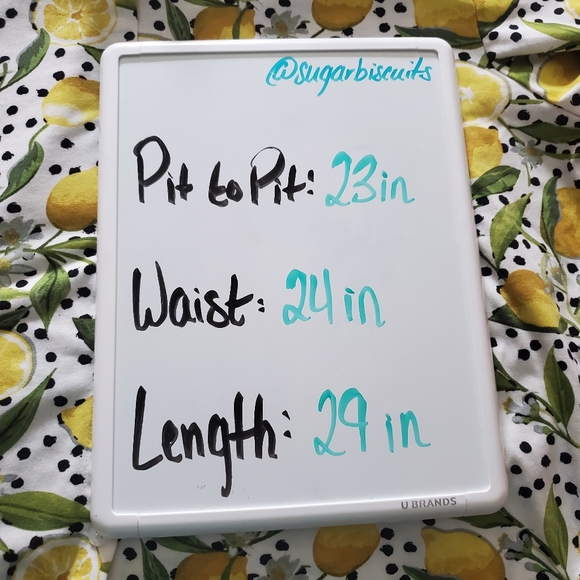 @sugarbiscuits
Pit to Pit: 23in
Waist: 24 in
Length: 29 in
U BRANDS